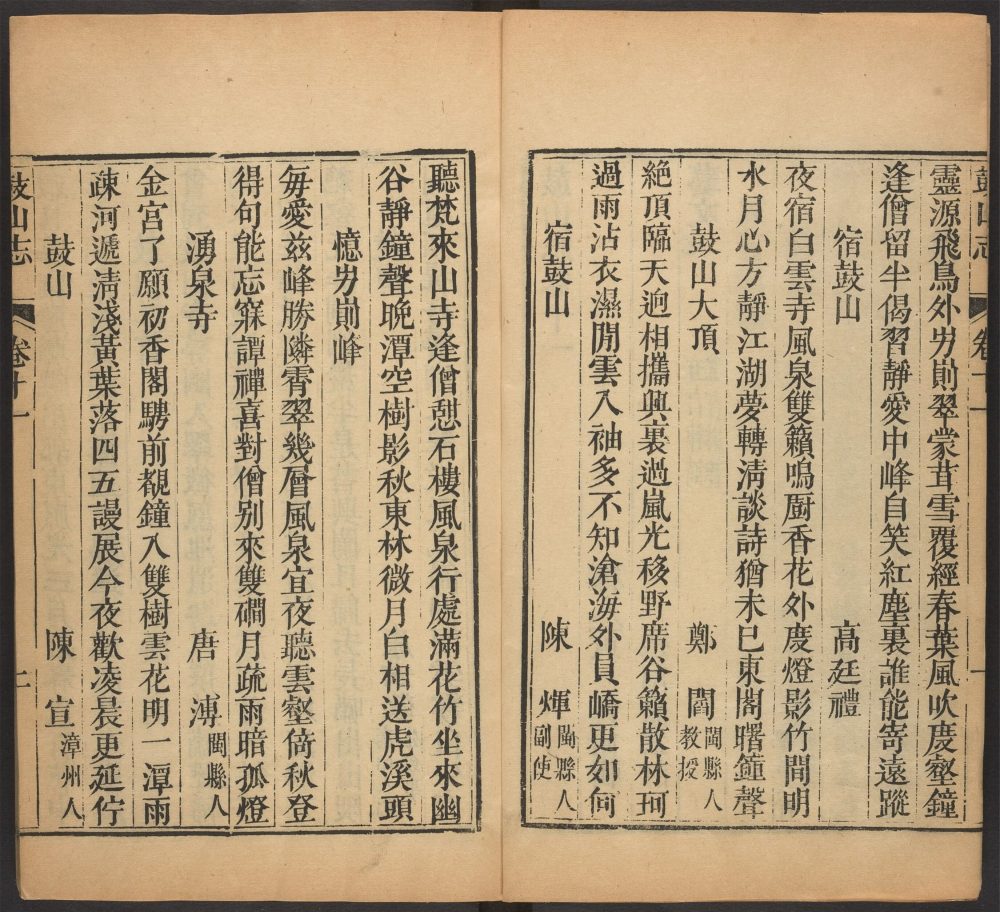 鼓山志 卷十一
靈源飛鳥外屴崱翠蒙茸雪覆經春葉風吹度壑鐘
逢僧留半偈習靜愛中峰自笑紅塵裏誰能寄遠蹤
宿鼓山 高廷禮
夜宿白雲寺風泉雙籟鳴厨香花外度燈影竹間明
水月心方靜江湖夢轉淸談詩猶未已東閣曙鐘聲
鼓山大頂 鄭閻 閩縣人教授
絶頂臨天逈相攜興裏過嵐光移野席谷籟散林珂
過雨沾衣濕閒雲入袖多不知滄海外員嶠更如何
宿鼓山 陳煇 閩縣人副使
聽梵來山寺逢僧憇石樓風泉行處滿花竹坐來幽
谷靜鐘聲晩潭空樹影秋東林微月白相送虎溪頭
憶屴崱峰
每愛玆峰勝隣霄翠幾層風泉宜夜聽雲壑倚秋登
得句能忘寐譚禪喜對僧别來雙磵月疏雨暗孤燈
湧泉寺 唐漙 閩縣人
金宫了願初香閣騁前覩鐘入雙樹雲花明一潭雨
疎河遞淸淺黃葉落四五謾展今夜歡凌晨更延佇
鼓山 陳宣 漳州人
鼓山志 卷十一 二